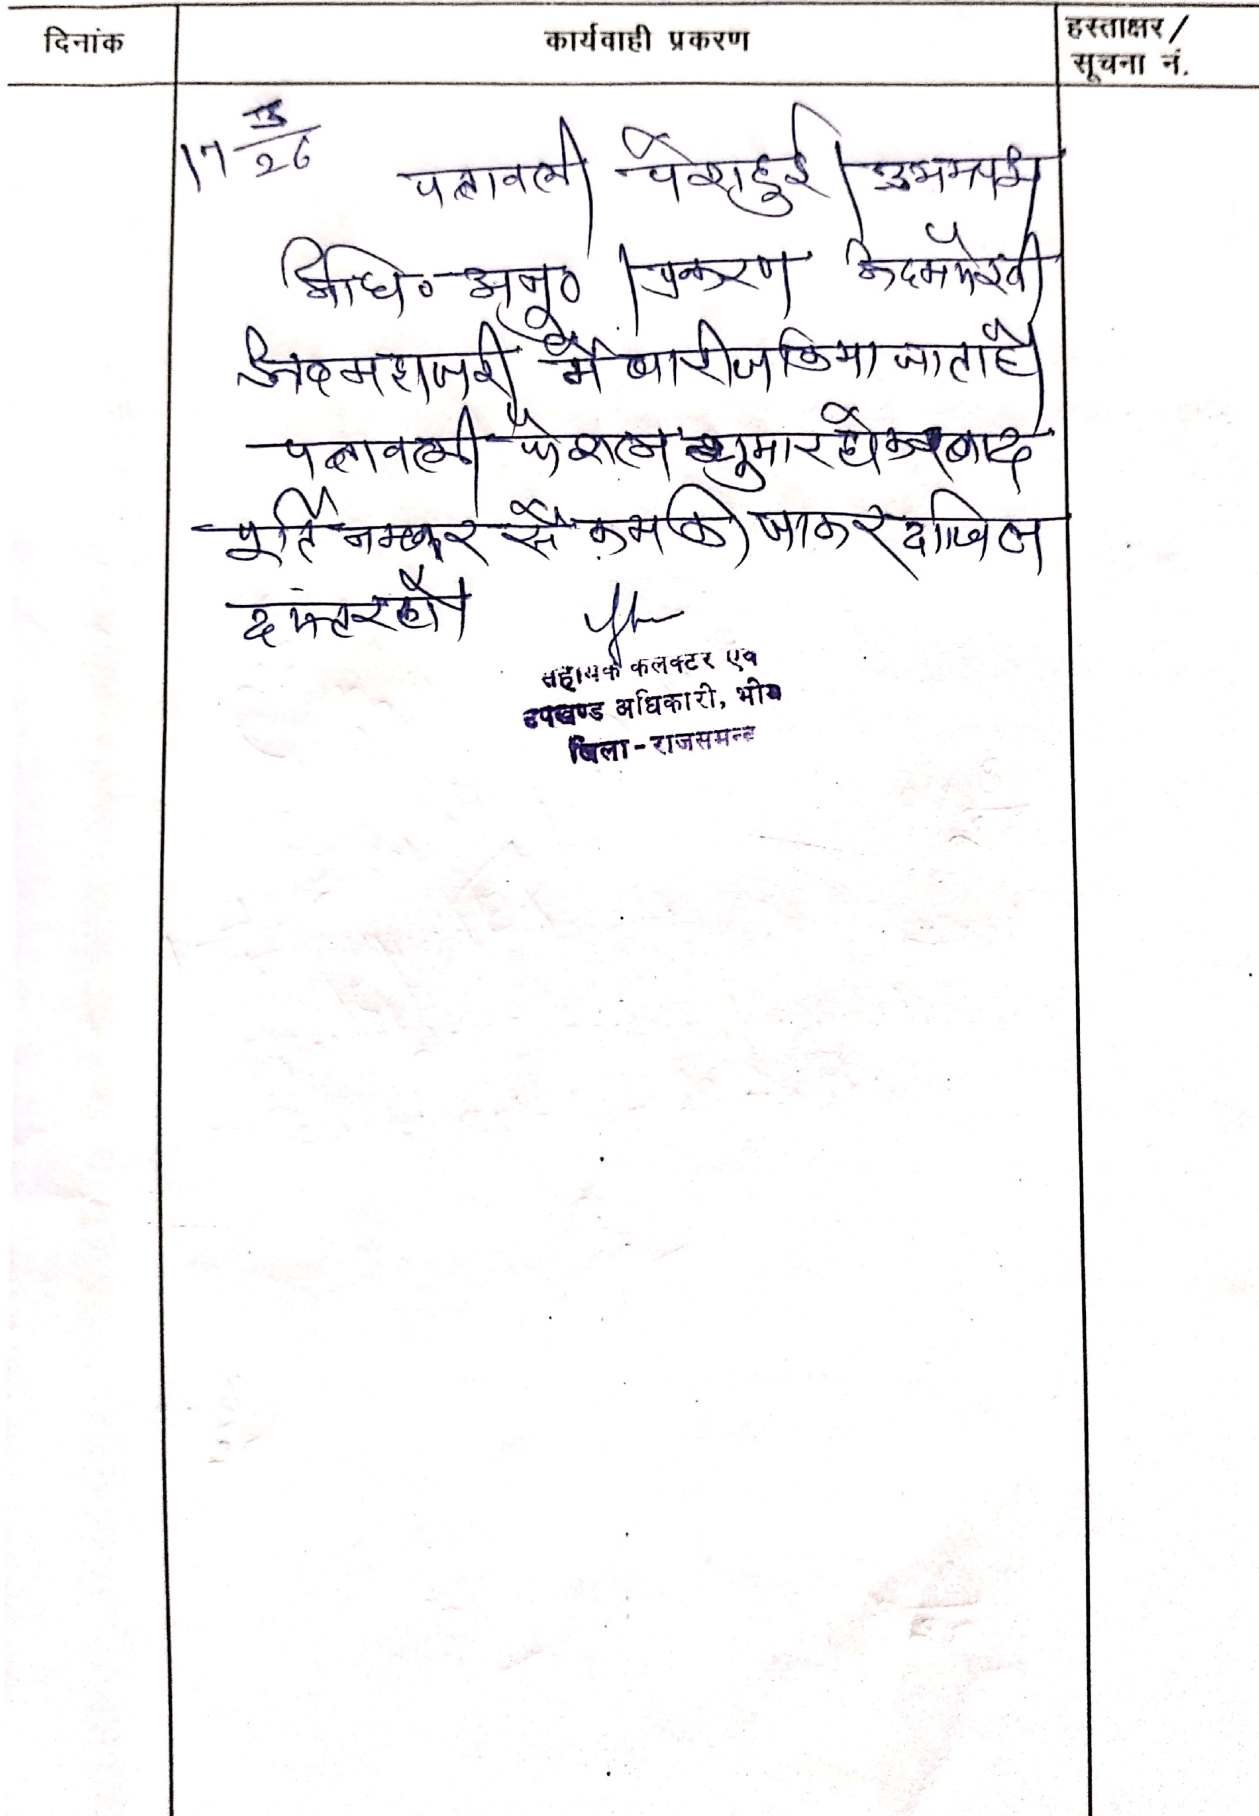 दिनांक
कार्यवाही प्रकरण
हस्ताक्षर/
सूचना नं.
17 3/26
पत्रावली पेश हुई। उभयपक्ष
अधि० अनु०। प्रकरण अदमपैरवी
अदमहाजरी में खारीज किया जाता है।
पत्रावली फैशल शुमार होकर बाद
पूर्ति नम्बर से कम की जाकर दाखिल
दफ्तर हो।
सहायक कलक्टर एव
उपखण्ड अधिकारी, भीम
जिला-राजसमन्द